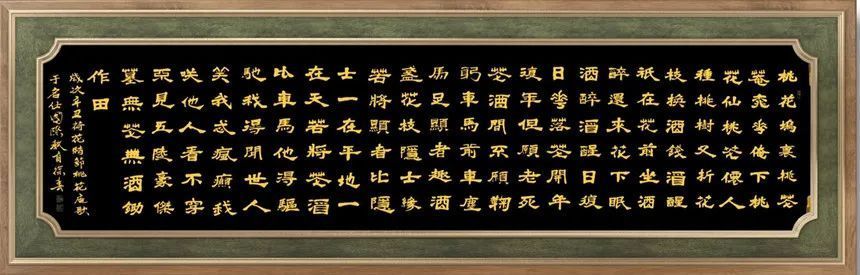 桃花塢裏桃花
菴桃華菴下桃
花仙桃花僊人
種桃樹又折花
枝換酒錢酒醒
祇在花前坐酒
醉還來花下眠
酒醉酒醒日復
日華落花開年
復年但願老死
花酒間不願鞠
躬車馬前車塵
馬足顯者趣酒
盞花枝隱士緣
若將顯者比隱
士一在平地一
在天若將花酒
比車馬他得驅
馳我得閒世人
笑我忒瘋癲我
咲他人看不穿
不見五陵豪傑
墓無花無酒鋤
作田
歲次辛丑荷花時節桃花庵歌
于名仕國際